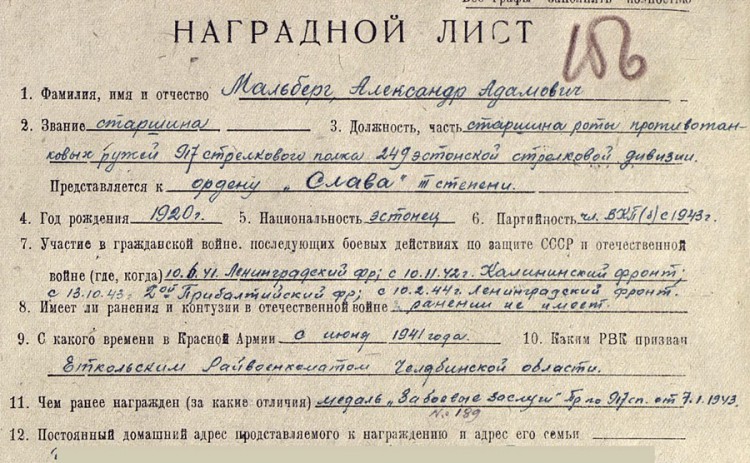 Все графы заполнить полностью
НАГРАДНОЙ ЛИСТ
1. Фамилия, имя и отчество Мальберг, Александр Адамович
2. Звание старшина 3. Должность, часть старшина роты противотан-
ковых ружей 917 стрелкового полка 249 эстонской стрелковой дивизии.
Представляется к ордену „Слава" III степени.
4. Год рождения 1920г. 5. Национальность эстонец 6. Партийность чл. ВКП(б) с 1943г.
7. Участие в гражданской войне. последующих боевых действиях по защите СССР и отечественной
войне (где, когда) 10.6.41. Ленинградский фр; с 10.11.42г. Калининский фронт;
с 13.10.43. 2ой Прибалтийский фр; с 10.2.44г. Ленинградский фронт.
8. Имеет ли ранения и контузии в отечественной войне ранений не имеет.
9. С какого времени в Красной Армии с июня 1941 года. 10. Каким РВК призван
Еткольским Райвоенкоматом Челябинской области.
11. Чем ранее награжден (за какие отличия) медаль „За боевые заслуги" Пр по 917 сп. от 7.1.1943.
№ 189
12. Постоянный домашний адрес продставляемого к награждению и адрес его семьи